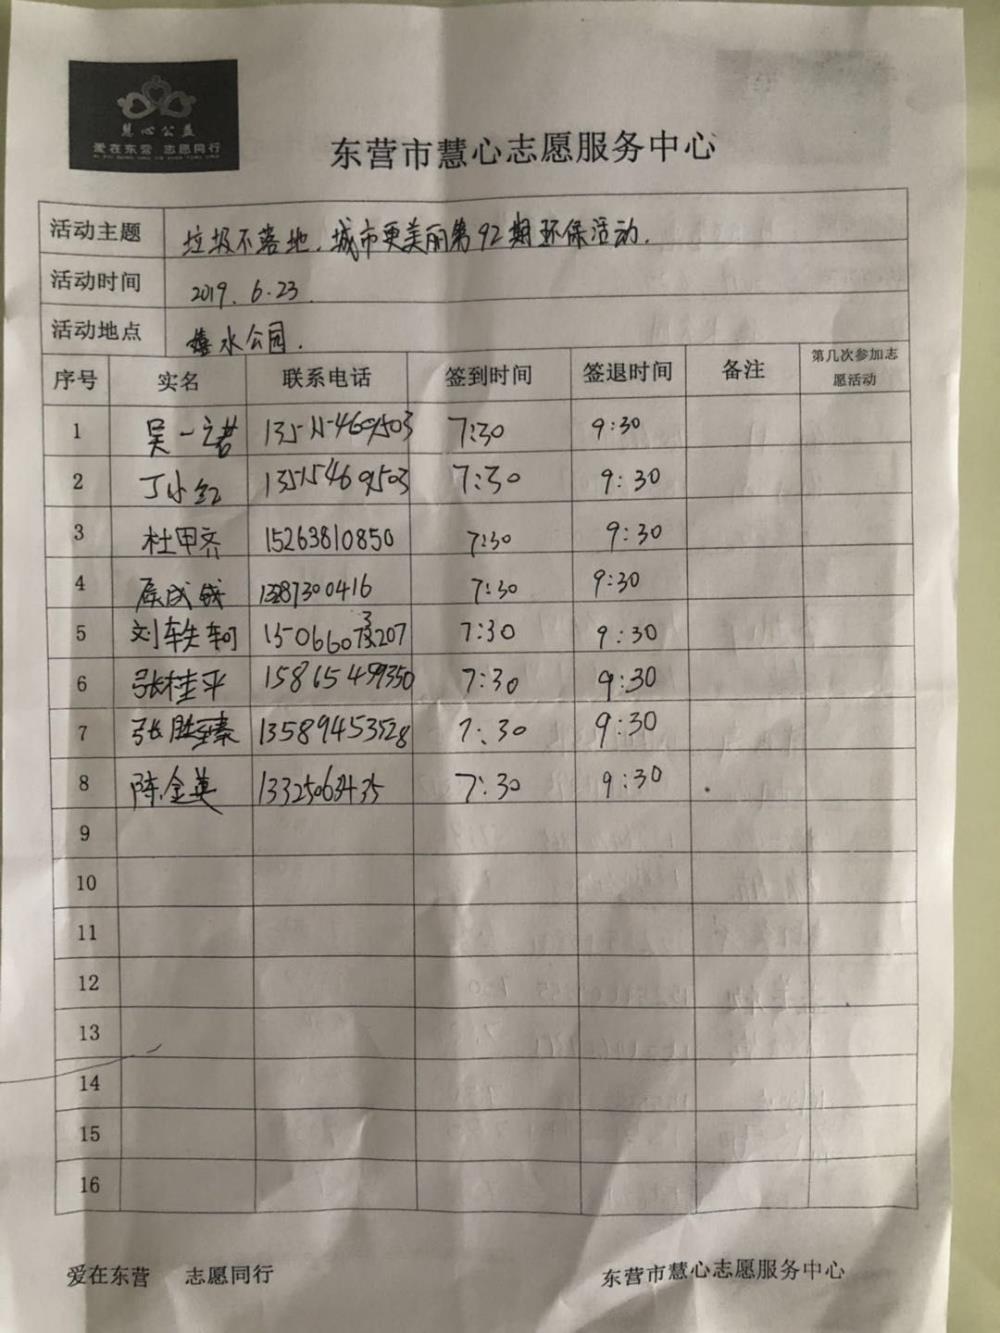 慧心公益
爱在东营 志愿同行
东营市慧心志愿服务中心
活动主题 垃圾不落地.城市更美丽第92期环保活动.
活动时间 2019.6.23.
活动地点 水公园.
序号 实名 联系电话 签到时间 签退时间 备注 第几次参加志愿活动
1 吴一诺 13515469503 7:30 9:30
2 丁小红 13515469503 7:30 9:30
3 杜甲齐 15263810850 7:30 9:30
4 7:30 9:30
5 刘轶轲 7:30 9:30
6 张桂平 15865499350 7:30 9:30
7 张胜臻 13589453528 7:30 9:30
8 陈金英 7:30 9:30
9
10
11
12
13
14
15
16
爱在东营 志愿同行 东营市慧心志愿服务中心